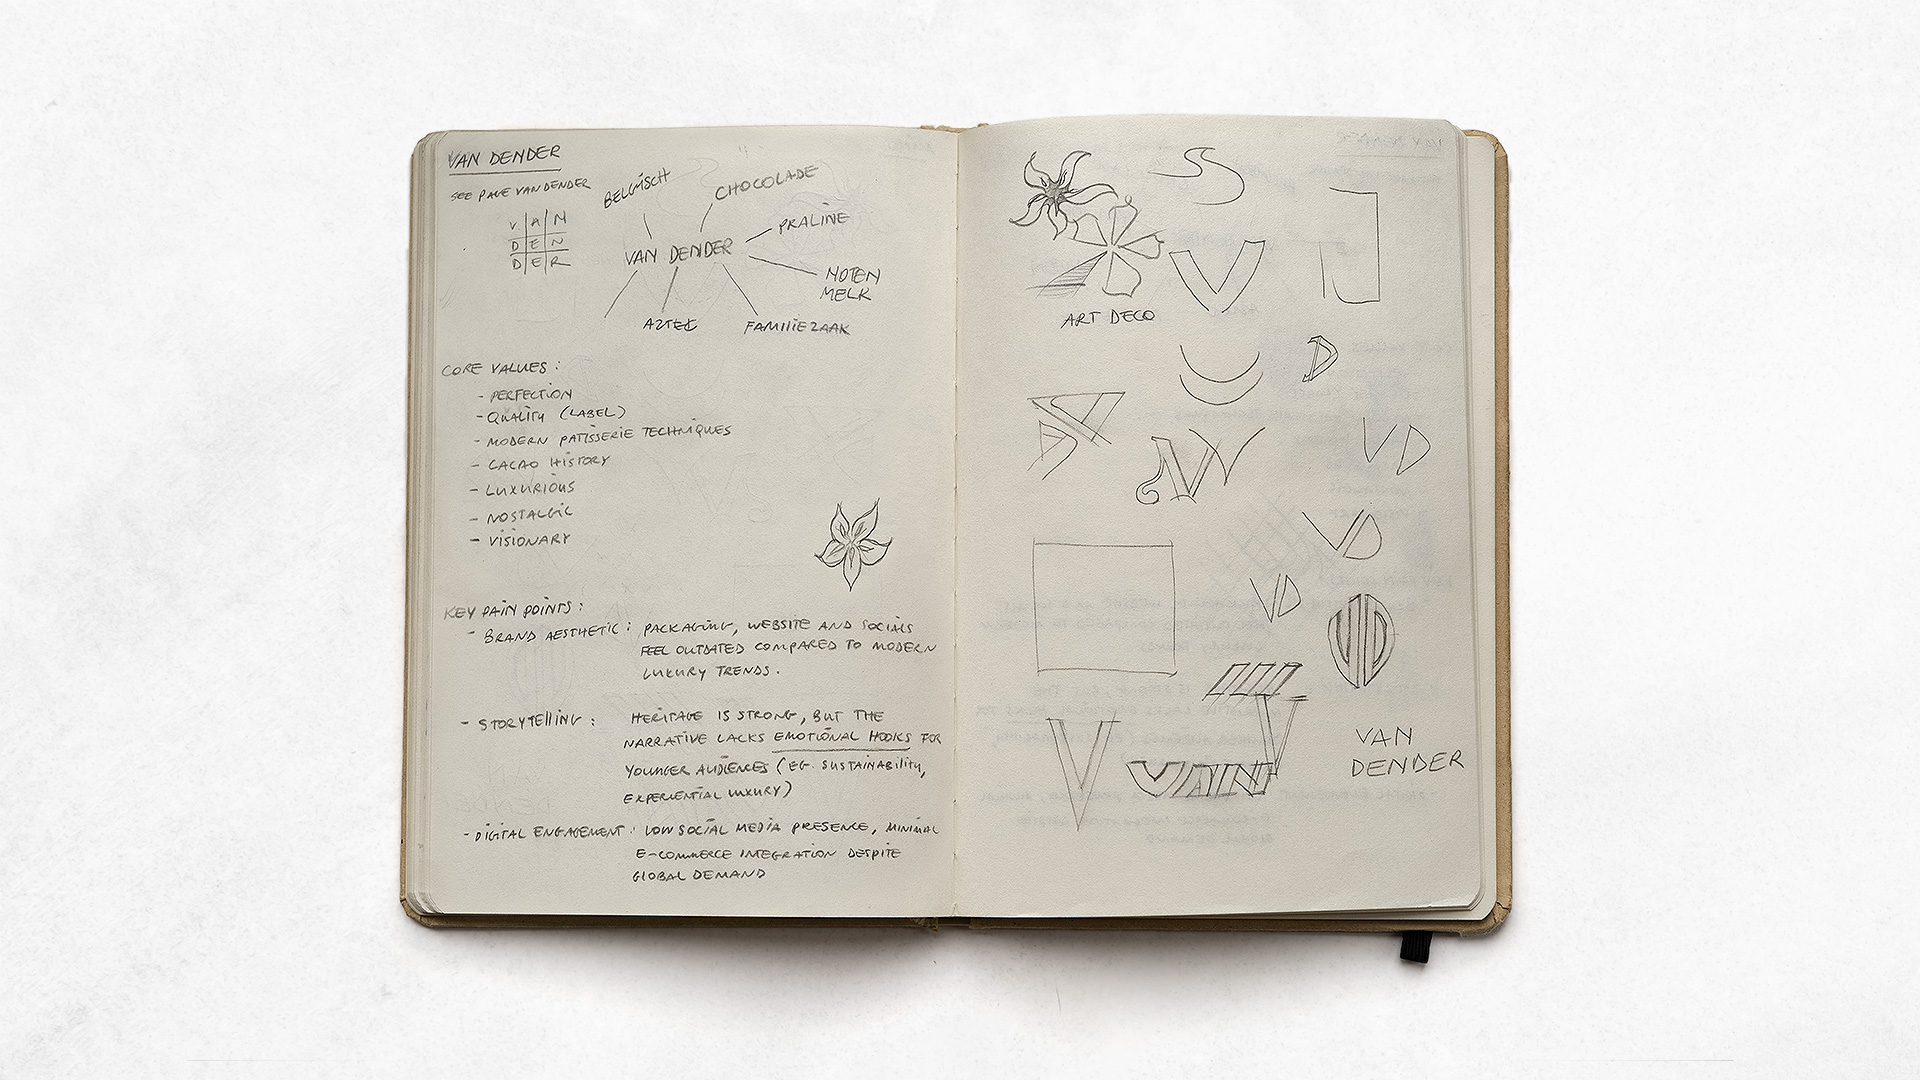 VAN DENDER
SEE PAGE VANDENDER
V A N
D E N
D E R
BELGISCH
CHOCOLADE
PRALINE
VAN DENDER
NOTEN
MELK
AZTEK
FAMILIEZAAK
CORE VALUES:
- PERFECTION
- QUALITY (LABEL)
- MODERN PATISSERIE TECHNIQUES
- CACAO HISTORY
- LUXURIOUS
- NOSTALGIC
- VISIONARY
KEY PAIN POINTS:
- BRAND AESTHETIC: PACKAGING, WEBSITE AND SOCIALS
FEEL OUTDATED COMPARED TO MODERN
LUXURY TRENDS.
- STORYTELLING: HERITAGE IS STRONG, BUT THE
NARRATIVE LACKS EMOTIONAL HOOKS FOR
YOUNGER AUDIENCES (EG. SUSTAINABILITY,
EXPERIENTIAL LUXURY)
- DIGITAL ENGAGEMENT: LOW SOCIAL MEDIA PRESENCE, MINIMAL
E-COMMERCE INTEGRATION DESPITE
GLOBAL DEMAND
V
ART DECO
D
VD
VD
VD
VD
V
VAN
VAN
DENDER